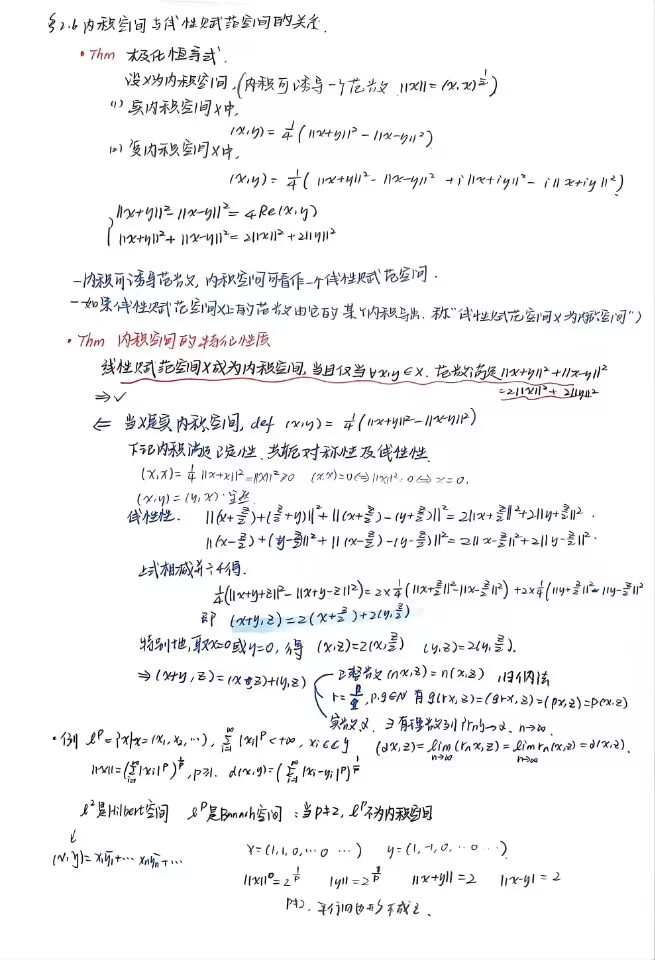 §2.6 内积空间与线性赋范空间的关系.
• Thm 极化恒等式.
设X为内积空间,(内积可诱导一个范数 ||x|| = (x,x)^{1/2})
(1) 实内积空间X中,
(x,y) = 1/4 (||x+y||² - ||x-y||²)
(2) 复内积空间X中,
(x,y) = 1/4 ( ||x+y||² - ||x-y||² + i||x+iy||² - i||x+iy||²)
{ ||x+y||² - ||x-y||² = 4Re(x,y)
||x+y||² + ||x-y||² = 2||x||² + 2||y||²
- 内积可诱导范数, 内积空间可看作一个线性赋范空间.
- 如果(线性赋范空间X上的范数由它的某个内积导出. 称"线性赋范空间X为内积空间")
• Thm 内积空间的特征性质
线性赋范空间X成为内积空间,当且仅当∀x,y∈X. 范数满足||x+y||²+||x-y||²
=2||x||²+2||y||²
⇒ ✓
⇐ 当X是实内积空间, def (x,y) = 1/4 (||x+y||²-||x-y||²)
下记内积满足正定性、共轭对称性及线性性.
(x,x) = 1/4 ||x+x||² = ||x||² ≥ 0 (x,x)=0 ⇔ ||x||²=0 ⇔ x=0.
(x,y) = (y,x).显然
线性性. ||(x+z/2)+(z/2+y)||² + ||(x+z/2)-(y+z/2)||² = 2||x+z/2||²+2||y+z/2||².
||(x-z/2)+(y-z/2)||² + ||(x-z/2)-(y-z/2)||² = 2||x-z/2||²+2||y-z/2||².
上式相减并÷4得.
1/4(||x+y+z||²-||x+y-z||²) = 2×1/4(||x+z/2||²-||x-z/2||²)+2×1/4(||y+z/2||²-||y-z/2||²
即 (x+y,z)=2(x+z/2)+2(y,z/2)
特别地,取x=0或y=0, 得 (x,z)=2(x,z/2) (y,z)=2(y,z/2).
⇒ (x+y,z)=(x,z)+(y,z)
正整数(nx,z) = n(x,z) 归纳法
r=p/q, p,q∈N 有q(rx,z)=(qrx,z)=(px,z)=p(x,z)
实数α, ∃有理数列{rn}→α, n→∞.
(αx,z)=lim_{n→∞}(rnx,z)=lim_{n→∞}rn(x,z)=α(x,z).
• 例 ℓ^p={x|x=(x₁,x₂,⋯), Σ_{i=1}^∞|xi|^p<+∞, xi∈C}
||x||=(Σ_{i=1}^∞|xi|^p)^{1/p}, p≥1. d(x,y)=(Σ_{i=1}^∞|xi-yi|^p)^{1/p}
ℓ²是Hilbert空间 ℓ^p是Banach空间 : 当p≠2, ℓ^p不为内积空间
↓
(x,y)=x₁ȳ₁+⋯xnȳn+⋯
x=(1,1,0,⋯0 ⋯) y=(1,-1,0,⋯0⋯)
||x||=2^{1/p} ||y||=2^{1/p} ||x+y||=2 ||x-y||=2
p≠2. 平行四边形不成立.